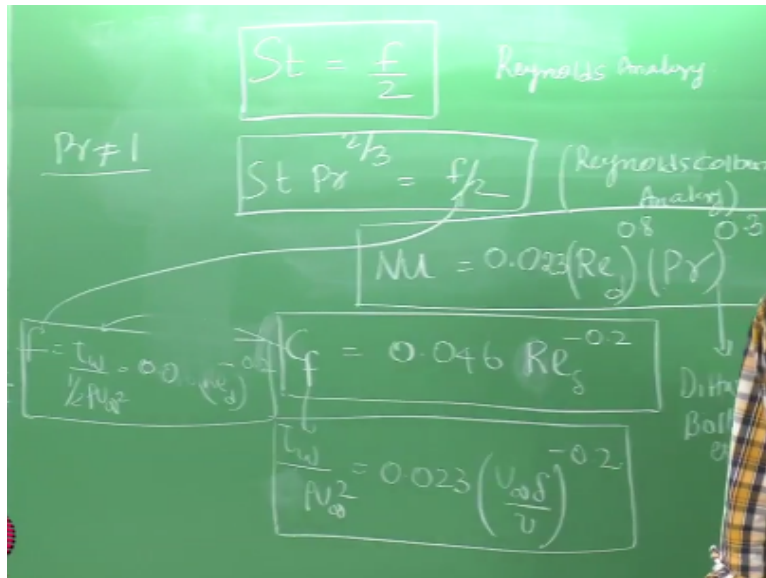 St = f/2
Reynolds Analogy
Pr ≠ 1
St Pr^2/3 = f/2
(Reynolds Colbur
Analogy)
Nu = 0.023 (Re_d)^0.8 (Pr)^0.3
f = τ_w / ½ρU∞² = (Re_d)^-0.2
C_f = 0.046 Re_δ^-0.2
τ_w / ρU∞² = 0.023 (U∞δ/υ)^-0.2